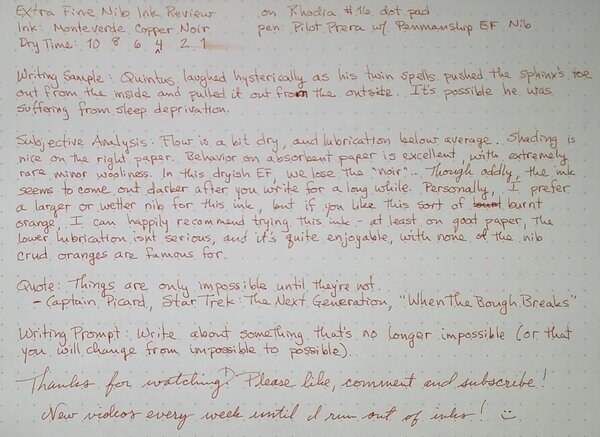 Extra Fine Nib Ink Review on Rhodia #16 dot pad
Ink: Monteverde Copper Noir pen: Pilot Prera w/ Penmanship EF Nib
Dry Time: 10 8 6 4 2 1
Writing Sample: Quintus laughed hysterically as his twin spells pushed the sphinx's toe
out from the inside and pulled it out from the outside. It's possible he was
suffering from sleep deprivation.
Subjective Analysis: Flow is a bit dry, and lubrication below average. Shading is
nice on the right paper. Behavior on absorbent paper is excellent, with extremely
rare minor wooliness. In this dryish EF, we lose the "noir"... Though oddly, the ink
seems to come out darker after you write for a long while. Personally, I prefer
a larger or wetter nib for this ink, but if you like this sort of burnt
orange, I can happily recommend trying this ink - at least on good paper, the
lower lubrication isnt serious, and it's quite enjoyable, with none of the nib
crud oranges are famous for.
Quote: Things are only impossible until they're not.
- Captain Picard, Star Trek: The Next Generation, "When The Bough Breaks"
Writing Prompt: Write about something that's no longer impossible (or that
you will change from impossible to possible).
Thanks for watching! Please like, comment and subscribe!
New videos every week until I run out of inks! :)